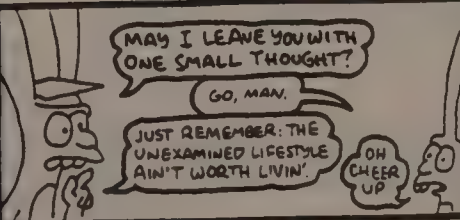 MAY I LEAVE YOU WITH
ONE SMALL THOUGHT?
GO, MAN.
JUST REMEMBER: THE
UNEXAMINED LIFESTYLE
AIN'T WORTH LIVIN'.
OH
CHEER
UP